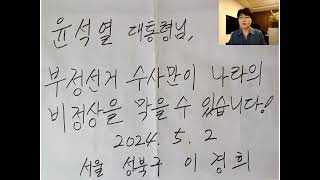 윤석열 대통령님,
부정선거 수사만이 나라의
비정상을 막을 수 있습니다!
2024. 5. 2
서울 성북구 이경희